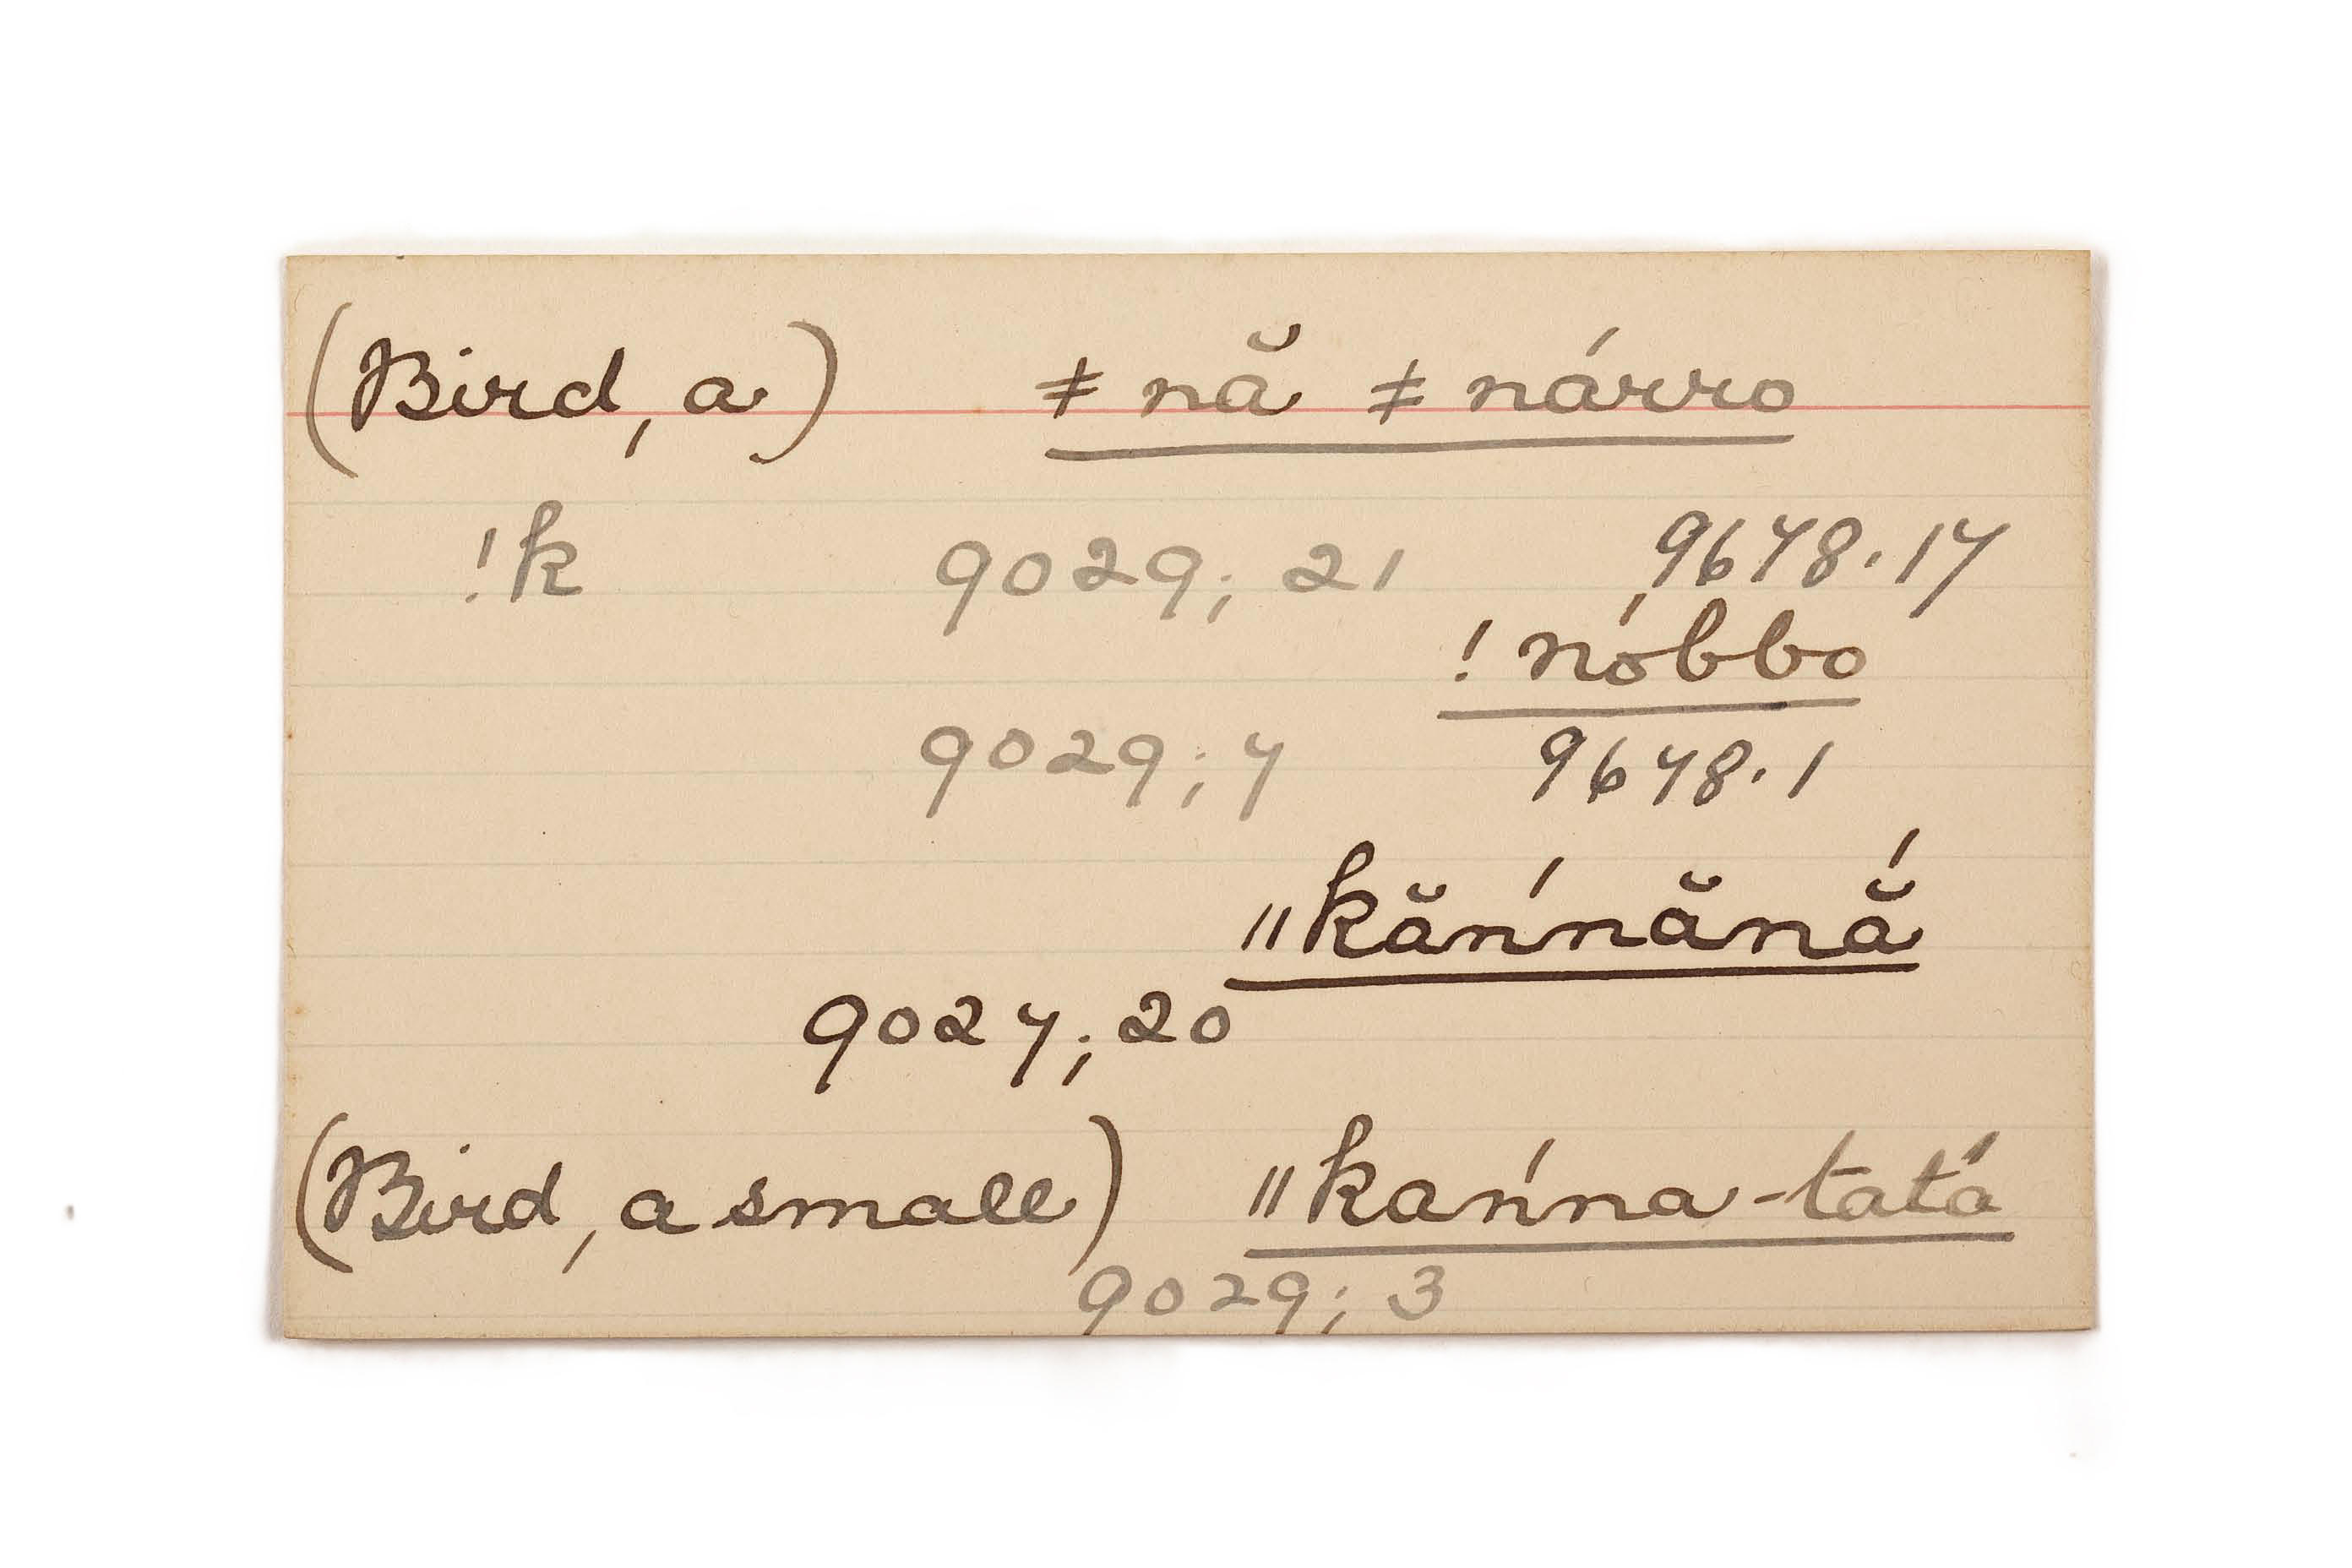 (Bird, a) ≠ nă ≠ nárro
!k 9029; 21 9678.17
! nóbbo
9029; 7 9678.1
ǁkăńnănắ
9027; 20
(Bird, a small) ǁkańna-tatá
9029; 3